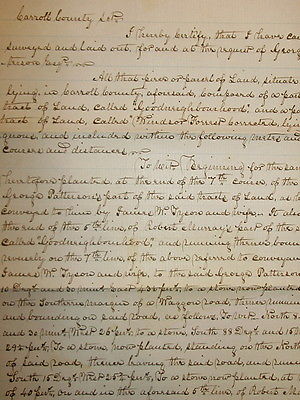 Carroll County Sct.
I hereby Certify, that I have care
surveyed and laid out, for and at the request of George
Esqr.
All that piece or parcel of Land, situate
lying, in Carroll County, aforesaid, composed of a part
tract of Land, called "Goodneighbourhood," and a pa
tract of Land, called "Windsor Forrest Corrected," lyi
guous, and included within the following metes an
courses and distances.
To Wit. Beginning for the sam
heretofore planted, at the end of the 7th course, of the
George Patterson's part of the said tracts of Land, as the
conveyed to him by James W. Tyson and wife. It also
the end of the 6th line, of Robert Murray's part of the s
called "Goodneighbourhood," and running thence boun
reversely on the 7th line, of the above referred to convey
James W. Tyson and wife, to the said George Patterson
Degs. and 30 mins. East 4 30/ ps. to a stone, now plant
on the Southern margin of a Waggon road, thence runnin
and bounding on said road, as follows, to wit. North 8
and 30 mins. West 26 ps. to a stone, South 88 Degs. and 15 m
ps. To a stone, now planted, standing on the North
of said road, thence leaving the said road, and runn
South 15 Degs. West 25 ps. To a stone now planted, at
of 40 ps. on and in the aforesaid 5th line, of Robert M